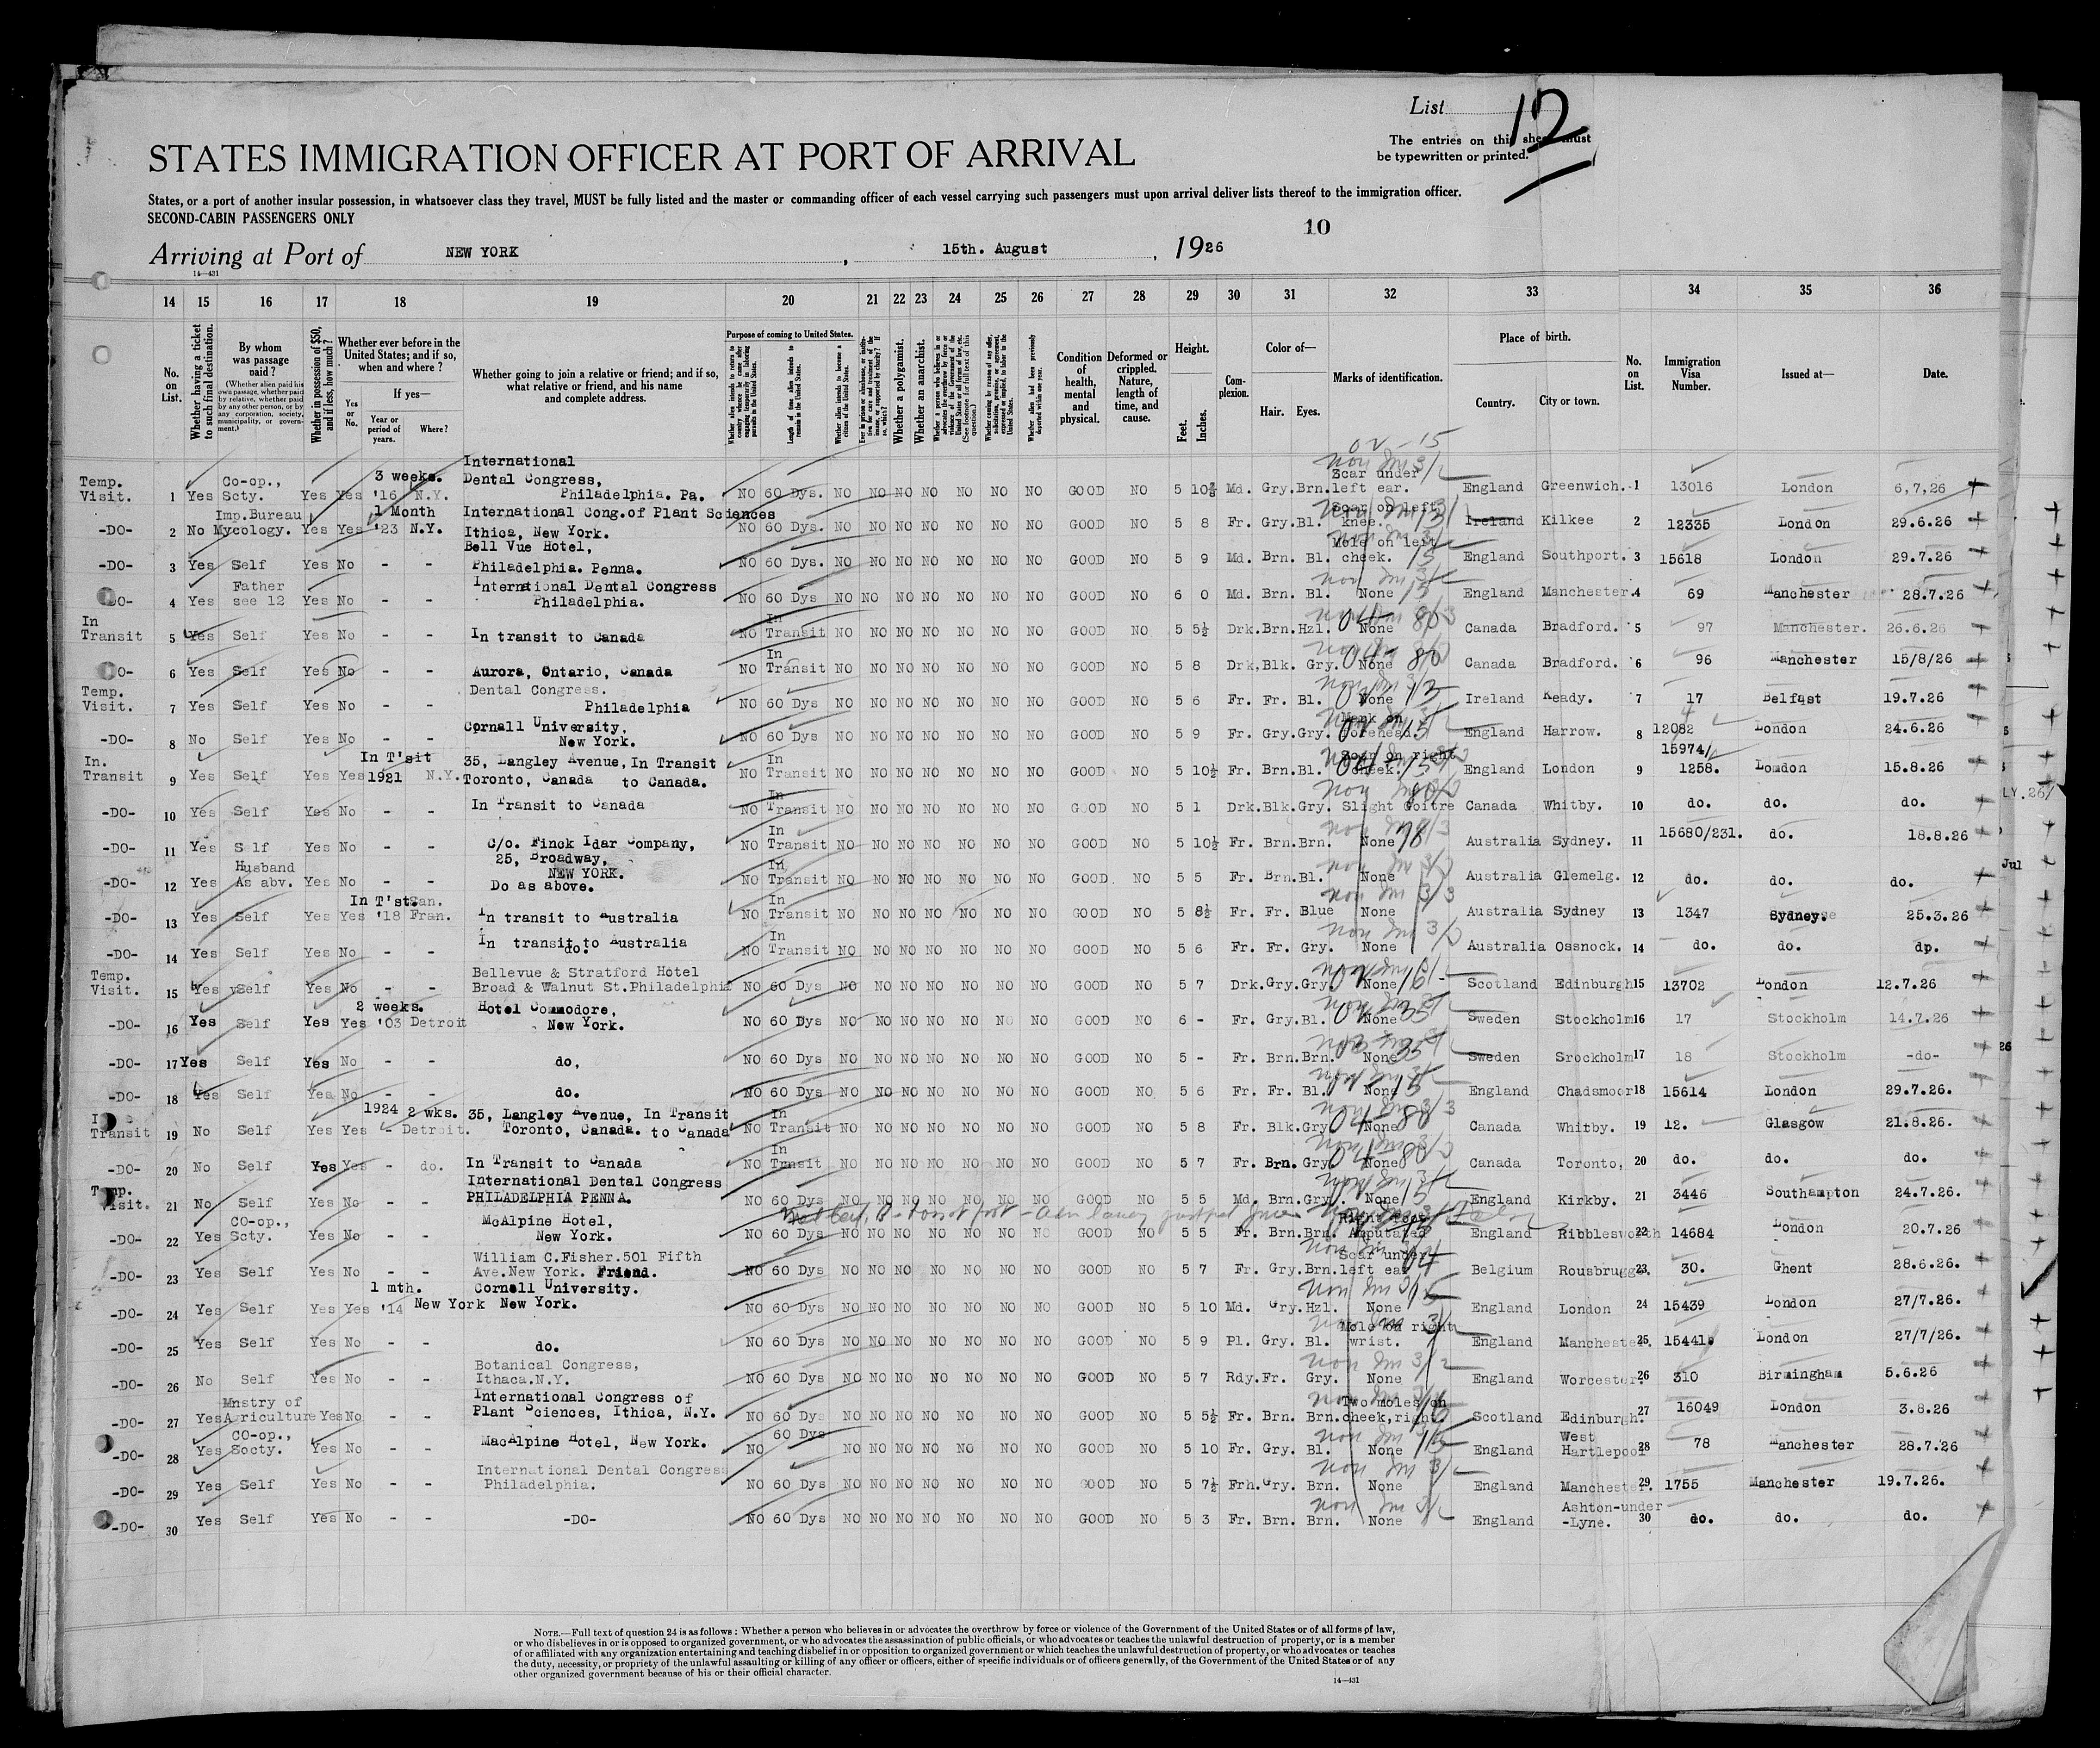 List 12
The entries on this sheet must
be typewritten or printed.
STATES IMMIGRATION OFFICER AT PORT OF ARRIVAL
States, or a port of another insular possession, in whatsoever class they travel, MUST be fully listed and the master or commanding officer of each vessel carrying such passengers must upon arrival deliver lists thereof to the immigration officer.
SECOND-CABIN PASSENGERS ONLY
10
Arriving at Port of NEW YORK, 15th. August, 1926
14—431
14 15 16 17 18 19 20 21 22 23 24 25 26 27 28 29 30 31 32 33 34 35 36
No. on List.
Whether having a ticket to such final destination.
By whom was passage paid?
(Whether alien paid his own passage, whether paid by relative, whether paid by any other person, or by any corporation, society, municipality, or government.)
Whether in possession of $50, and if less, how much?
Whether ever before in the United States; and if so, when and where?
If yes—
Yes or No.
Year or period of years.
Where?
Whether going to join a relative or friend; and if so, what relative or friend, and his name and complete address.
Purpose of coming to United States.
Length of time alien intends to remain in the United States.
Whether alien intends to become a citizen of the United States.
Whether a polygamist.
Whether an anarchist.
Whether alien had been previously deported within one year.
Condition of health, mental and physical.
Deformed or crippled. Nature, length of time, and cause.
Height.
Feet. Inches.
Complexion.
Color of—
Hair. Eyes.
Marks of identification.
Place of birth.
Country. City or town.
No. on List.
Immigration Visa Number.
Issued at—
Date.
Temp. Visit. 1 Yes Co-op., Scty. Yes Yes 3 weeks. '16 N.Y. International Dental Congress, Philadelphia. Pa. NO 60 Dys. NO NO NO NO NO NO NO GOOD NO 5 10 Md. Gry. Brn. Scar under left ear. England Greenwich. 1 13016 London 6,7,26
-DO- 2 No Imp.Bureau Mycology. Yes Yes 1 Month '23 N.Y. International Cong.of Plant Sciences Ithica, New York. NO 60 Dys. NO NO NO NO NO NO NO GOOD NO 5 8 Fr. Gry. Bl. Scar on left knee. Ireland Kilkee 2 12335 London 29.6.26
-DO- 3 Yes Self Yes No - - Bell Vue Hotel, Philadelphia. Penna. NO 60 Dys. NO NO NO NO NO NO NO GOOD NO 5 9 Md. Brn. Bl. Mole on left cheek. England Southport. 3 15618 London 29.7.26
-DO- 4 Yes Father see 12 Yes No - - International Dental Congress Philadelphia. NO 60 Dys NO NO NO NO NO NO NO GOOD NO 6 0 Md. Brn. Bl. None England Manchester. 4 69 Manchester 28.7.26
In Transit 5 Yes Self Yes No - - In transit to Canada NO In Transit NO NO NO NO NO NO NO GOOD NO 5 5½ Drk. Brn. Hzl. None Canada Bradford. 5 97 Manchester. 26.6.26
-DO- 6 Yes Self Yes No - - Aurora, Ontario, Canada NO In Transit NO NO NO NO NO NO NO GOOD NO 5 8 Drk. Blk. Gry. None Canada Bradford. 6 96 Manchester 15/8/26
Temp. Visit. 7 Yes Self Yes No - - Dental Congress. Philadelphia NO 60 Dys NO NO NO NO NO NO NO GOOD NO 5 6 Fr. Fr. Bl. None Ireland Keady. 7 17 Belfast 19.7.26
-DO- 8 No Self Yes No - - Cornall University, New York. NO 60 Dys NO NO NO NO NO NO NO GOOD NO 5 9 Fr. Gry. Gry. Mark on forehead. England Harrow. 8 12082 London 24.6.26
In. Transit 9 Yes Self Yes Yes In T'sit 1921 N.Y. 35, Langley Avenue, In Transit Toronto, Canada to Canada. NO In Transit NO NO NO NO NO NO NO GOOD NO 5 10½ Fr. Brn. Bl. Scar on right cheek. England London 9 15974/1258. London 15.8.26
-DO- 10 Yes Self Yes No - - In Transit to Canada NO In Transit NO NO NO NO NO NO NO GOOD NO 5 1 Drk. Blk. Gry. Slight Goitre Canada Whitby. 10 do. do. do.
-DO- 11 Yes Self Yes No - - C/o. Finok Idar Company, 25, Broadway, NEW YORK. NO In Transit NO NO NO NO NO NO NO GOOD NO 5 10½ Fr. Brn. Brn. None Australia Sydney. 11 15680/231. do. 18.8.26
-DO- 12 Yes Husband As abv. Yes No - - Do as above. NO In Transit NO NO NO NO NO NO NO GOOD. NO 5 5 Fr. Brn. Bl. None Australia Glemelg. 12 do. do. do.
-DO- 13 Yes Self Yes Yes In T'st. '18 San. Fran. In transit to Australia NO In Transit NO NO NO NO NO NO NO GOOD NO 5 8½ Fr. Fr. Blue None Australia Sydney 13 1347 Sydney. 25.3.26
-DO- 14 Yes Self Yes No - - In transit to Australia do. NO In Transit NO NO NO NO NO NO NO GOOD NO 5 6 Fr. Fr. Gry. None Australia Ossnock. 14 do. do. dp.
Temp. Visit. 15 Yes Self Yes No - - Bellevue & Stratford Hotel Broad & Walnut St.Philadelphia NO 60 Dys NO NO NO NO NO NO NO GOOD NO 5 7 Drk. Gry. Gry. None Scotland Edinburgh 15 13702 London 12.7.26
-DO- 16 Yes Self Yes Yes 2 weeks. '03 Detroit Hotel Commodore, New York. NO 60 Dys NO NO NO NO NO NO NO GOOD NO 6 - Fr. Gry. Bl. None Sweden Stockholm 16 17 Stockholm 14.7.26
-DO- 17 Yes Self Yes No - - do, NO 60 Dys NO NO NO NO NO NO NO GOOD NO 5 - Fr. Brn. Brn. None Sweden Srockholm 17 18 Stockholm -do-
-DO- 18 Yes Self Yes No - - do. NO 60 Dys NO NO NO NO NO NO NO GOOD NO 5 6 Fr. Fr. Bl. None England Chadsmoor 18 15614 London 29.7.26.
Transit 19 No Self Yes Yes 1924 - 2 wks. Detroit. 35, Langley Avenue, In Transit Toronto, Canada. to Canada NO In Transit NO NO NO NO NO NO NO GOOD NO 5 8 Fr. Blk. Gry None Canada Whitby. 19 12. Glasgow 21.8.26.
-DO- 20 No Self Yes Yes - do. In Transit to Canada NO In Transit NO NO NO NO NO NO NO GOOD NO 5 7 Fr. Brn. Gry. None Canada Toronto, 20 do. do. do.
Temp. Visit. 21 No Self Yes No - - International Dental Congress PHILADELPHIA PENNA. NO 60 Dys NO NO NO NO NO NO NO GOOD NO 5 5 Md. Brn. Gry. None England Kirkby. 21 3446 Southampton 24.7.26.
-DO- 22 Yes CO-op., Scty. Yes No - - McAlpine Hotel, New York. NO 60 Dys NO NO NO NO NO NO NO GOOD NO 5 5 Fr. Brn. Brn. Right foot Amputated England Ribblesworth 22 14684 London 20.7.26
-DO- 23 Yes Self Yes No - - William C.Fisher.501 Fifth Ave.New York. Friend. NO 60 Dys NO NO NO NO NO NO NO GOOD NO 5 7 Fr. Gry. Brn. Scar under left ear Belgium Rousbrugge. 23 30. Ghent 28.6.26.
-DO- 24 Yes Self Yes Yes 1 mth. '14 New York Cornell University. New York. NO 60 Dys NO NO NO NO NO NO NO GOOD NO 5 10 Md. Gry. Hzl. None England London 24 15439 London 27/7.26.
-DO- 25 Yes Self Yes No - - do. NO 60 Dys NO NO NO NO NO NO NO GOOD NO 5 9 Pl. Gry. Bl. Mole on right wrist. England Manchester. 25 15441 London 27/7/26.
-DO- 26 No Self Yes No - - Botanical Congress, Ithaca.N.Y. NO 60 Dys NO NO NO NO NO NO NO GOOD NO 5 7 Rdy. Fr. Gry. None England Worcester. 26 310 Birmingham 5.6.26
-DO- 27 Yes Mnstry of Agriculture Yes No - - International Congress of Plant Sciences, Ithica, N.Y. NO 60 Dys NO NO NO NO NO NO NO GOOD NO 5 5½ Fr. Brn. Brn. Two moles on cheek, right. Scotland Edinburgh. 27 16049 London 3.8.26
-DO- 28 Yes CO-op., Socty. Yes No - - MacAlpine Hotel, New York. NO 60 Dys NO NO NO NO NO NO NO GOOD NO 5 10 Fr. Gry. Bl. None England West Hartlepool 28 78 Manchester 28.7.26
-DO- 29 Yes Self Yes No - - International Dental Congress Philadelphia. NO 60 Dys NO NO NO NO NO NO NO GOOD NO 5 7½ Frh. Gry. Brn. None England Manchester. 29 1755 Manchester 19.7.26.
-DO- 30 Yes Self Yes No - - -DO- NO 60 Dys NO NO NO NO NO NO NO GOOD NO 5 3 Fr. Brn. Brn. None England Ashton-under-Lyne. 30 do. do. do.
NOTE.—Full text of question 24 is as follows: Whether a person who believes in or advocates the overthrow by force or violence of the Government of the United States or of all forms of law,
or who disbelieves in or is opposed to organized government, or who advocates the assassination of public officials, or who advocates or teaches the unlawful destruction of property, or is a member
of or affiliated with any organization entertaining and teaching disbelief in or opposition to organized government or which teaches the unlawful destruction of property, or who advocates or teaches
the duty, necessity, or propriety of the unlawful assaulting or killing of any officer or officers, either of specific individuals or of officers generally, of the Government of the United States or of any
other organized government because of his or their official character.
14—431